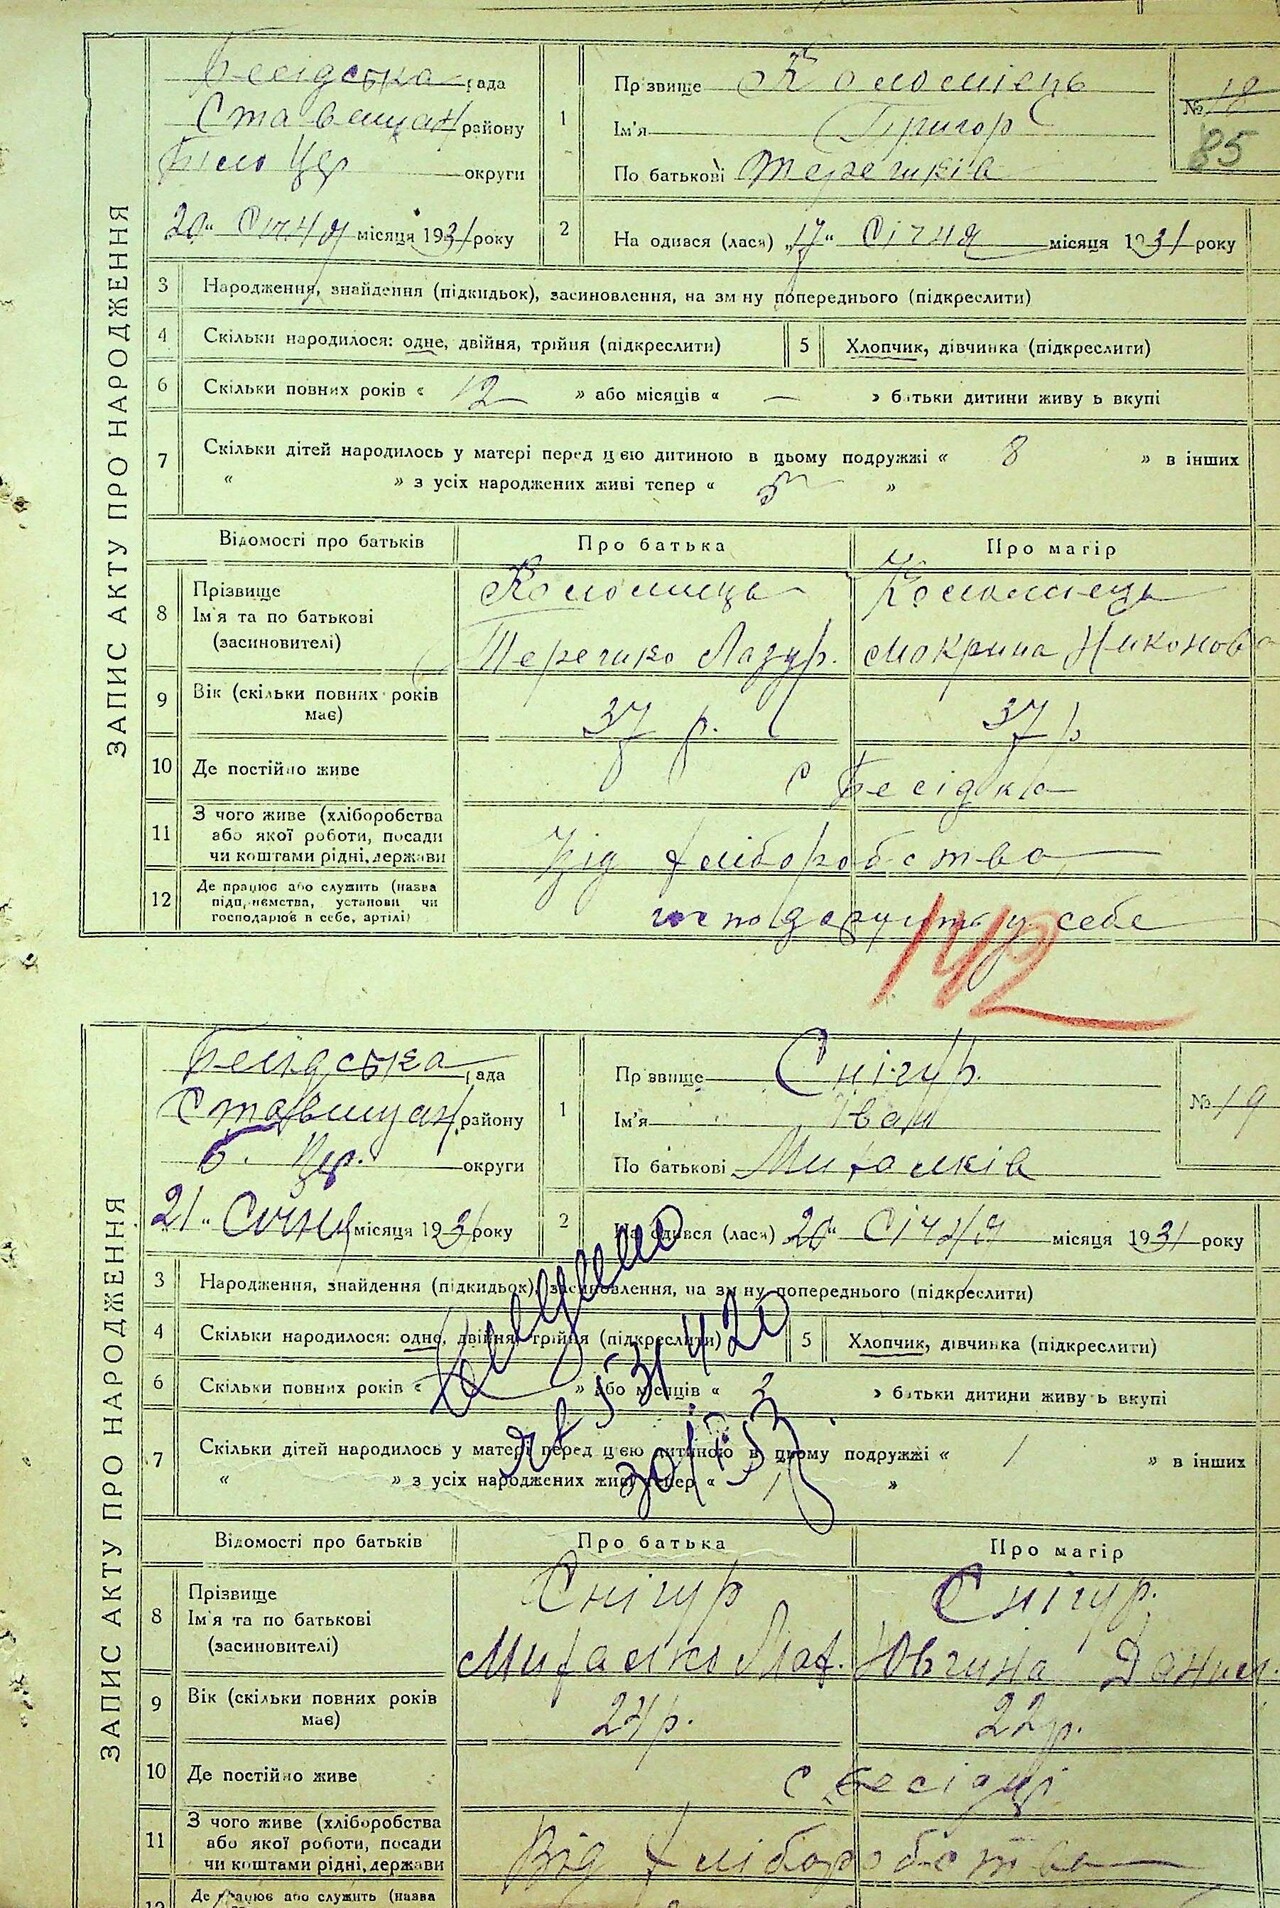 ЗАПИС АКТУ ПРО НАРОДЖЕННЯ
Бесідська рада
Ставищан району
Біло Цер округи
20 " Січня місяця 1931 року
1 Прізвище Коломієць
Ім'я Григор
По батькові Терешків
№ 18
85
2 На одився (лася) „17 " Січня місяця 1931 року
3 Народження, знайдення (підкидьок), засиновлення, на зм ну попереднього (підкреслити)
4 Скільки народилося: одне, двійня, трійня (підкреслити) 5 Хлопчик, дівчинка (підкреслити)
6 Скільки повних років « 12 » або місяців « — » батьки дитини живу ь вкупі
7 Скільки дітей народилось у матері перед цією дитиною в цьому подружжі « 8 » в інших
« » з усіх народжених живі тепер « 5 »
Відомості про батьків Про батька Про матір
8 Прізвище
Ім'я та по батькові
(засиновителі)
Коломиець
Терешко Лазур.
Коломієць
Мокрина Никонов
9 Вік (скільки повних років
має)
37 р. 37 р
10 Де постійно живе с Бесідка
11 З чого живе (хліборобства
або якої роботи, посади
чи коштами рідні, держави
Від хліборобства
12 Де працює або служить (назва
підприємства, установи чи
господарює в себе, артілі)
господарують у себе
142
ЗАПИС АКТУ ПРО НАРОДЖЕННЯ
Бесідська рада
Ставищан району
Б. Цер. округи
21 " Січня місяця 1931 року
1 Прізвище Снігур.
Ім'я Іван
По батькові Михалків
№ 19
2 На одився (лася) 20 " Січня місяця 1931 року
3 Народження, знайдення (підкидьок), засиновлення, на зм ну попереднього (підкреслити)
4 Скільки народилося: одне, двійня, трійня (підкреслити) 5 Хлопчик, дівчинка (підкреслити)
6 Скільки повних років « — » або місяців « 2 » батьки дитини живу ь вкупі
7 Скільки дітей народилось у матері перед цією дитиною в цьому подружжі « 1 » в інших
« » з усіх народжених живі тепер « 1 »
Відомості про батьків Про батька Про матір
8 Прізвище
Ім'я та по батькові
(засиновителі)
Снігур
Михалко
Снігур.
Югина Данил.
9 Вік (скільки повних років
має)
24 р. 22 р.
10 Де постійно живе с Бесідці
11 З чого живе (хліборобства
або якої роботи, посади
чи коштами рідні, держави
Від хліборобства
12 Де працює або служить (назва